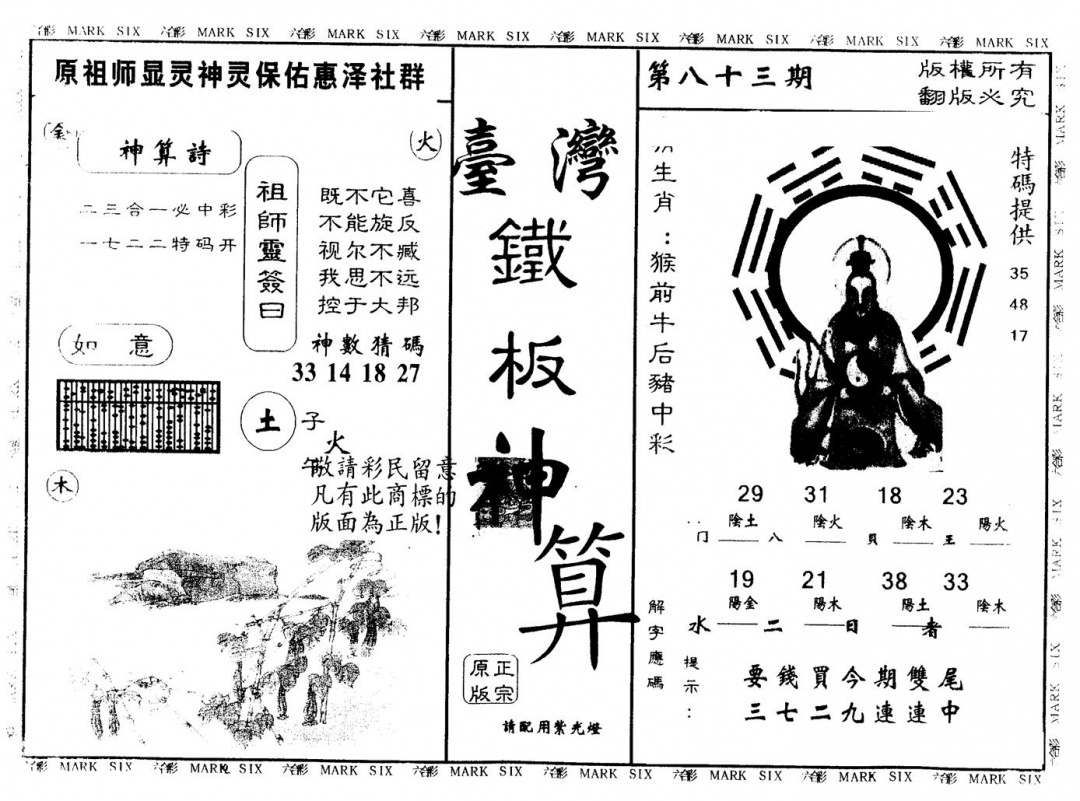 MARK SIX 六合彩 MARK SIX 六合彩 MARK SIX 六合彩 MARK SIX 六合彩 MARK SIX 六合彩 MARK SIX 六合彩 MARK SIX 六合彩 MARK SIX
原祖师显灵神灵保佑惠泽社群
金
火
神算詩
二三合一必中彩
一七二二特码开
祖師靈簽曰
既不它喜
不能旋反
视尔不臧
我思不远
控于大邦
神數猜碼
33 14 18 27
如意
土
子
火
午
木
敬請彩民留意
凡有此商標的
版面為正版!
臺灣
鐵
板
神
算
正宗
原版
請配用紫光燈
第八十三期
版權所有
翻版必究
生肖:猴前牛后豬中彩
特碼提供
35
48
17
29 31 18 23
陰土 陰火 陰木 陽火
门 八 貝 王
19 21 38 33
陽金 陽木 陽土 陰木
水 二 日 者
解字應碼
提示:
要錢買今期雙尾
三七二九連連中
六合彩 MARK SIX 六合彩 MARK SIX 六合彩 MARK SIX 六合彩 MARK SIX 六合彩 MARK SIX 六合彩 MARK SIX 六合彩 MARK SIX 六合彩 MARK SIX